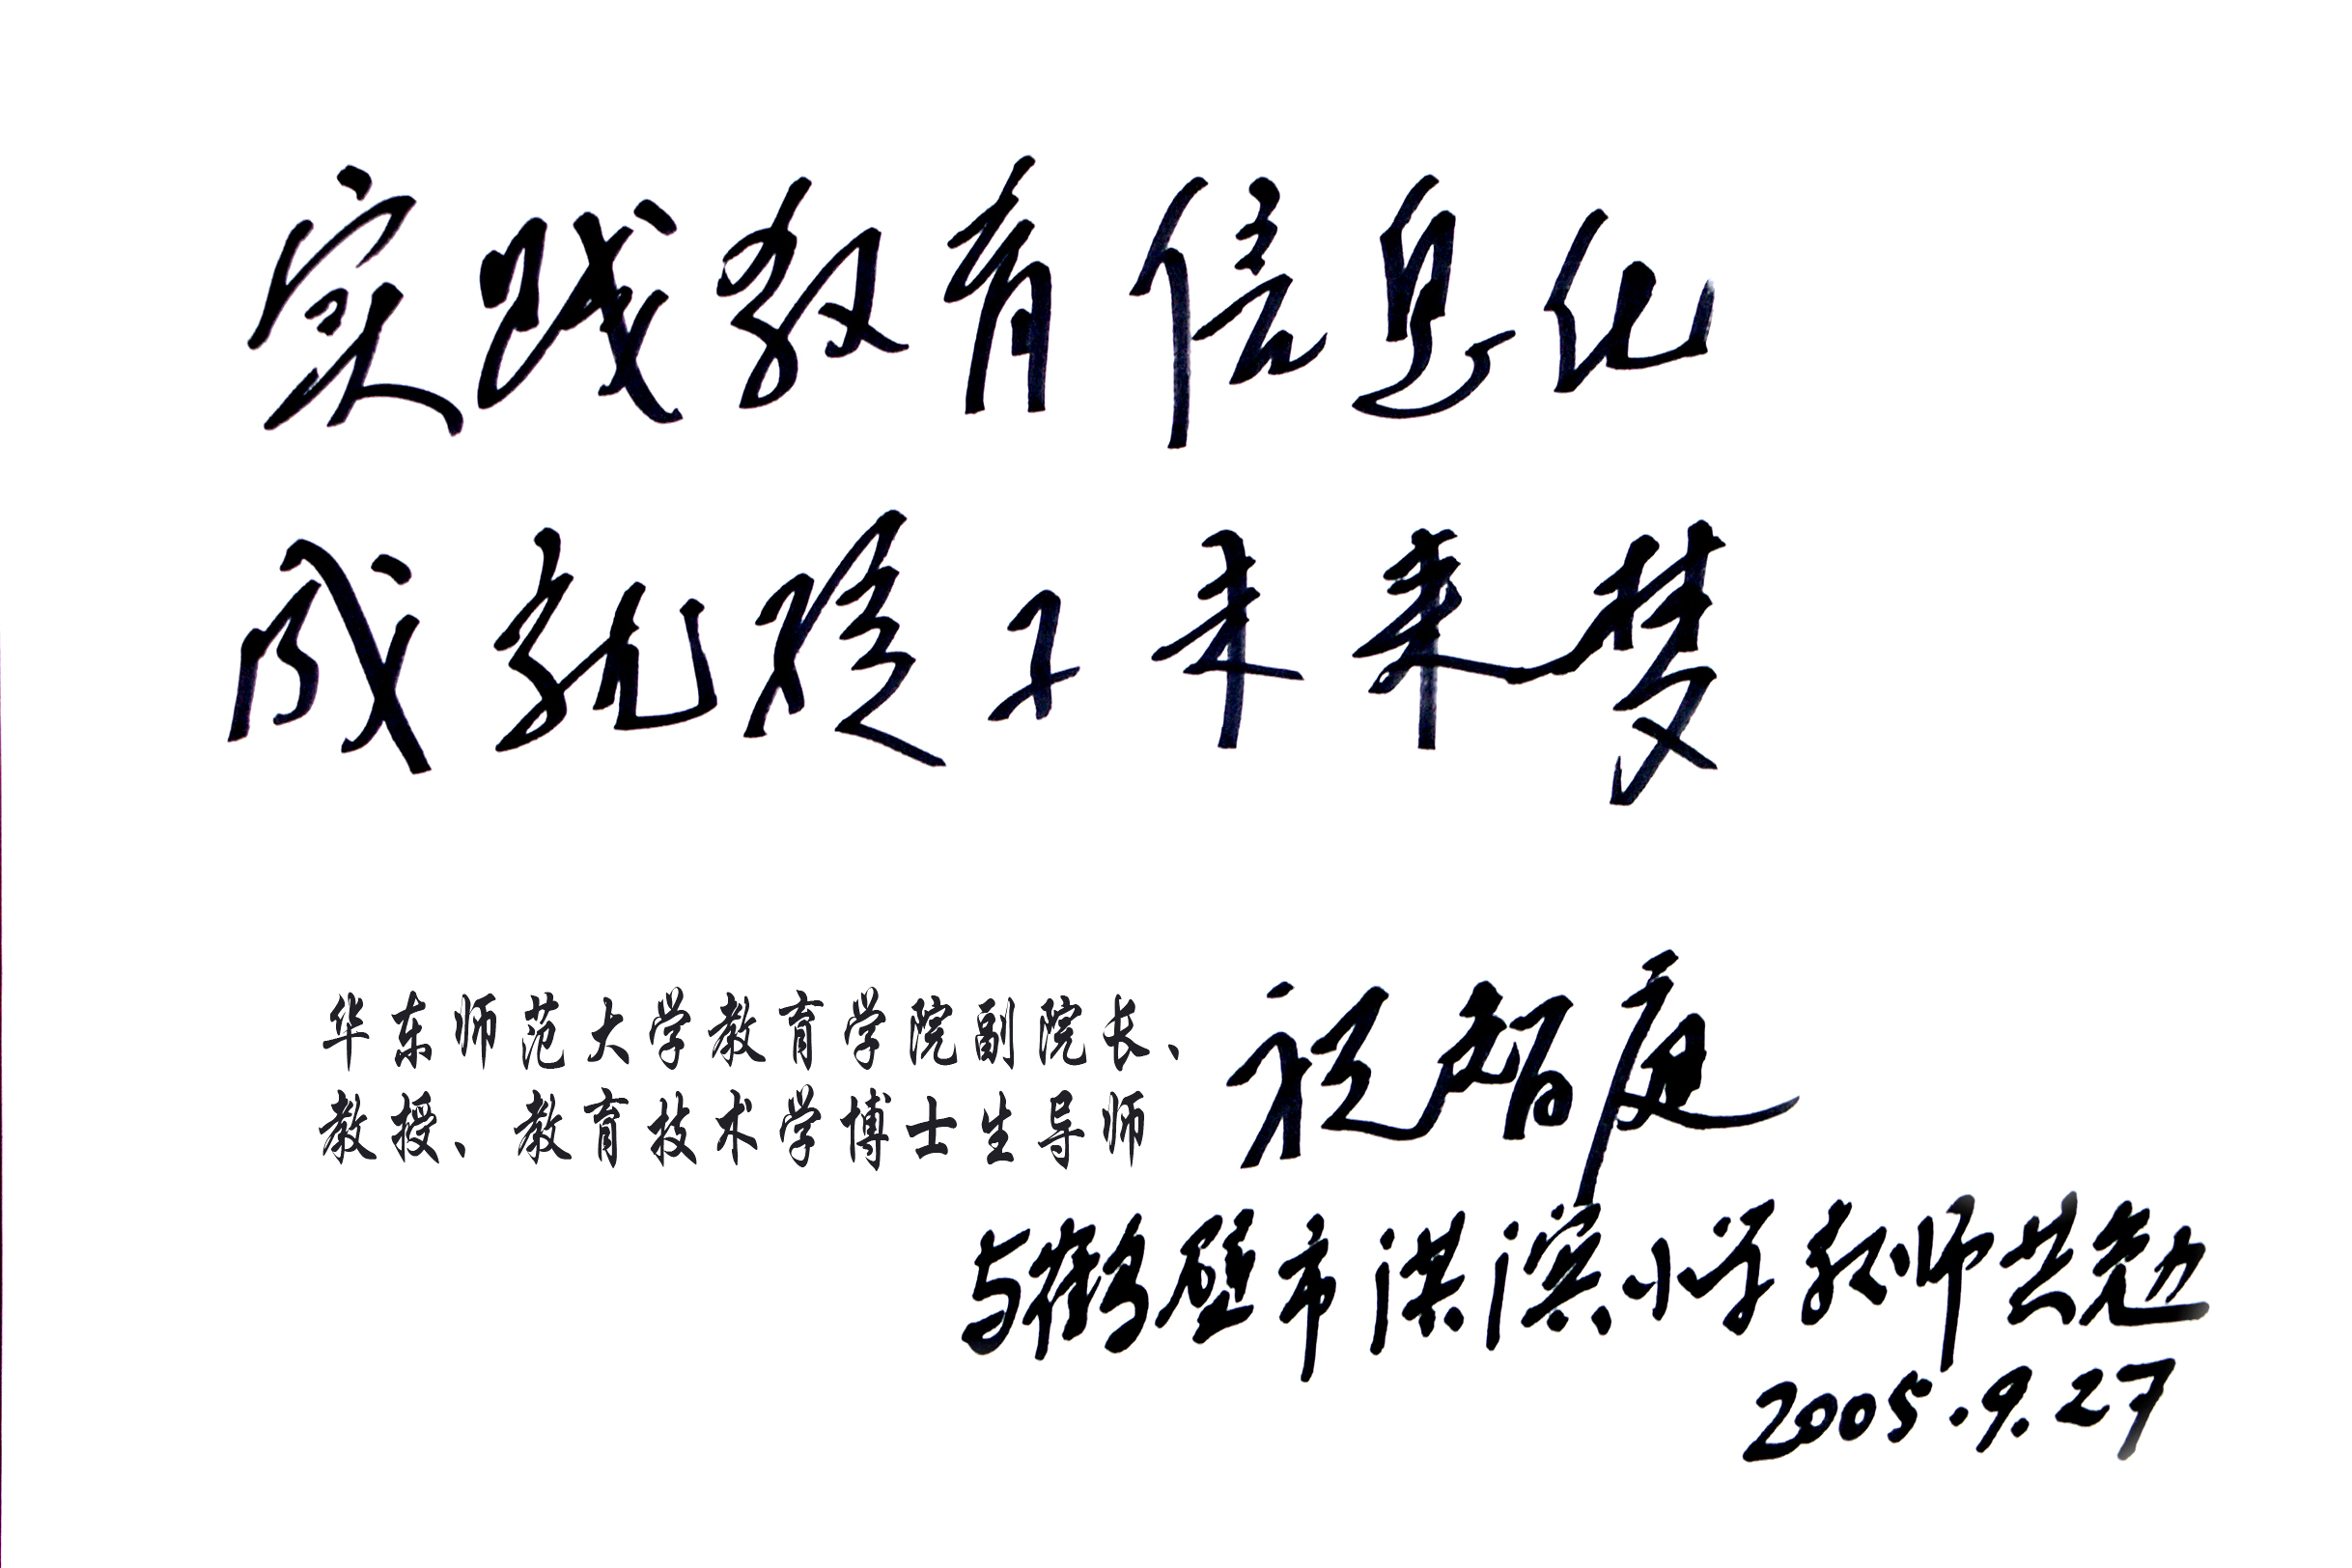 实践教育信息化
成就孩子未来梦
华东师范大学教育学院副院长、
教授、教育技术学博士生导师
祝智庭
与鹤壁市淇滨小学教师共勉
2005.9.27